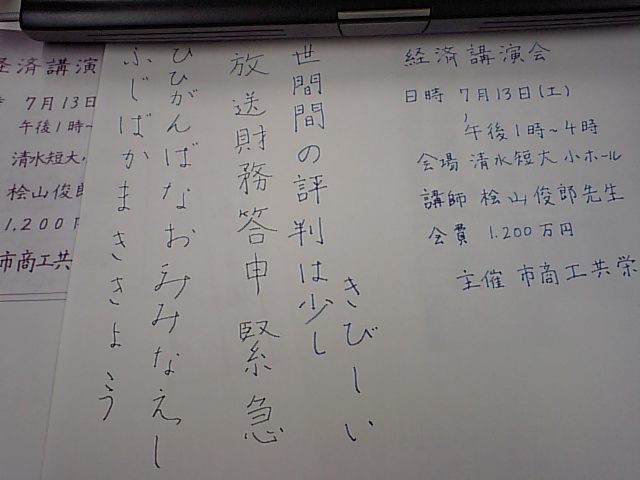 経済講演会
日時 7月13日(土)
午後1時~4時
会場 清水短大小ホール
講師 桧山俊郎先生
会費 1.200万円
主催 市商工共栄
世間間の評判は少し
きびしい
放送財務答申緊急
ひひがんばなおみみなえし
ふじばかまききょう
経済講演
7月13日
午後1時~
清水短大
桧山俊郎
1.200
市商工共